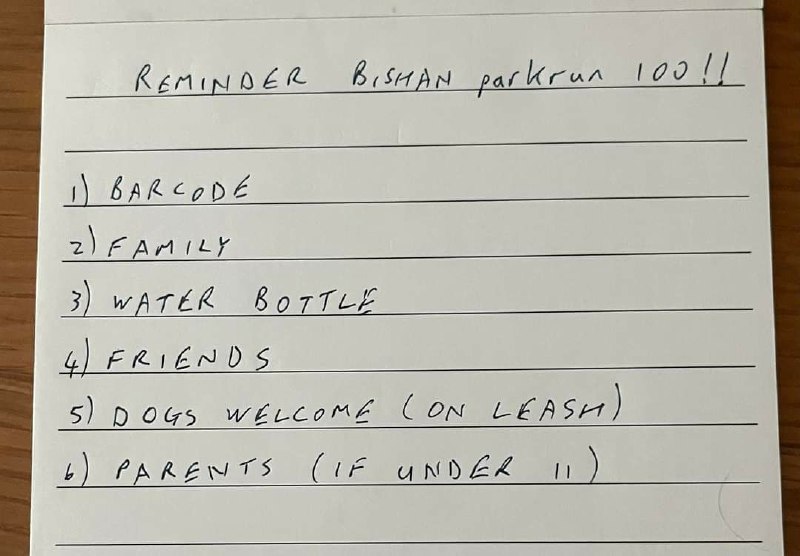 REMINDER BISHAN parkrun 100!!
1) BARCODE
2) FAMILY
3) WATER BOTTLE
4) FRIENDS
5) DOGS WELCOME (ON LEASH)
6) PARENTS (IF UNDER 11)